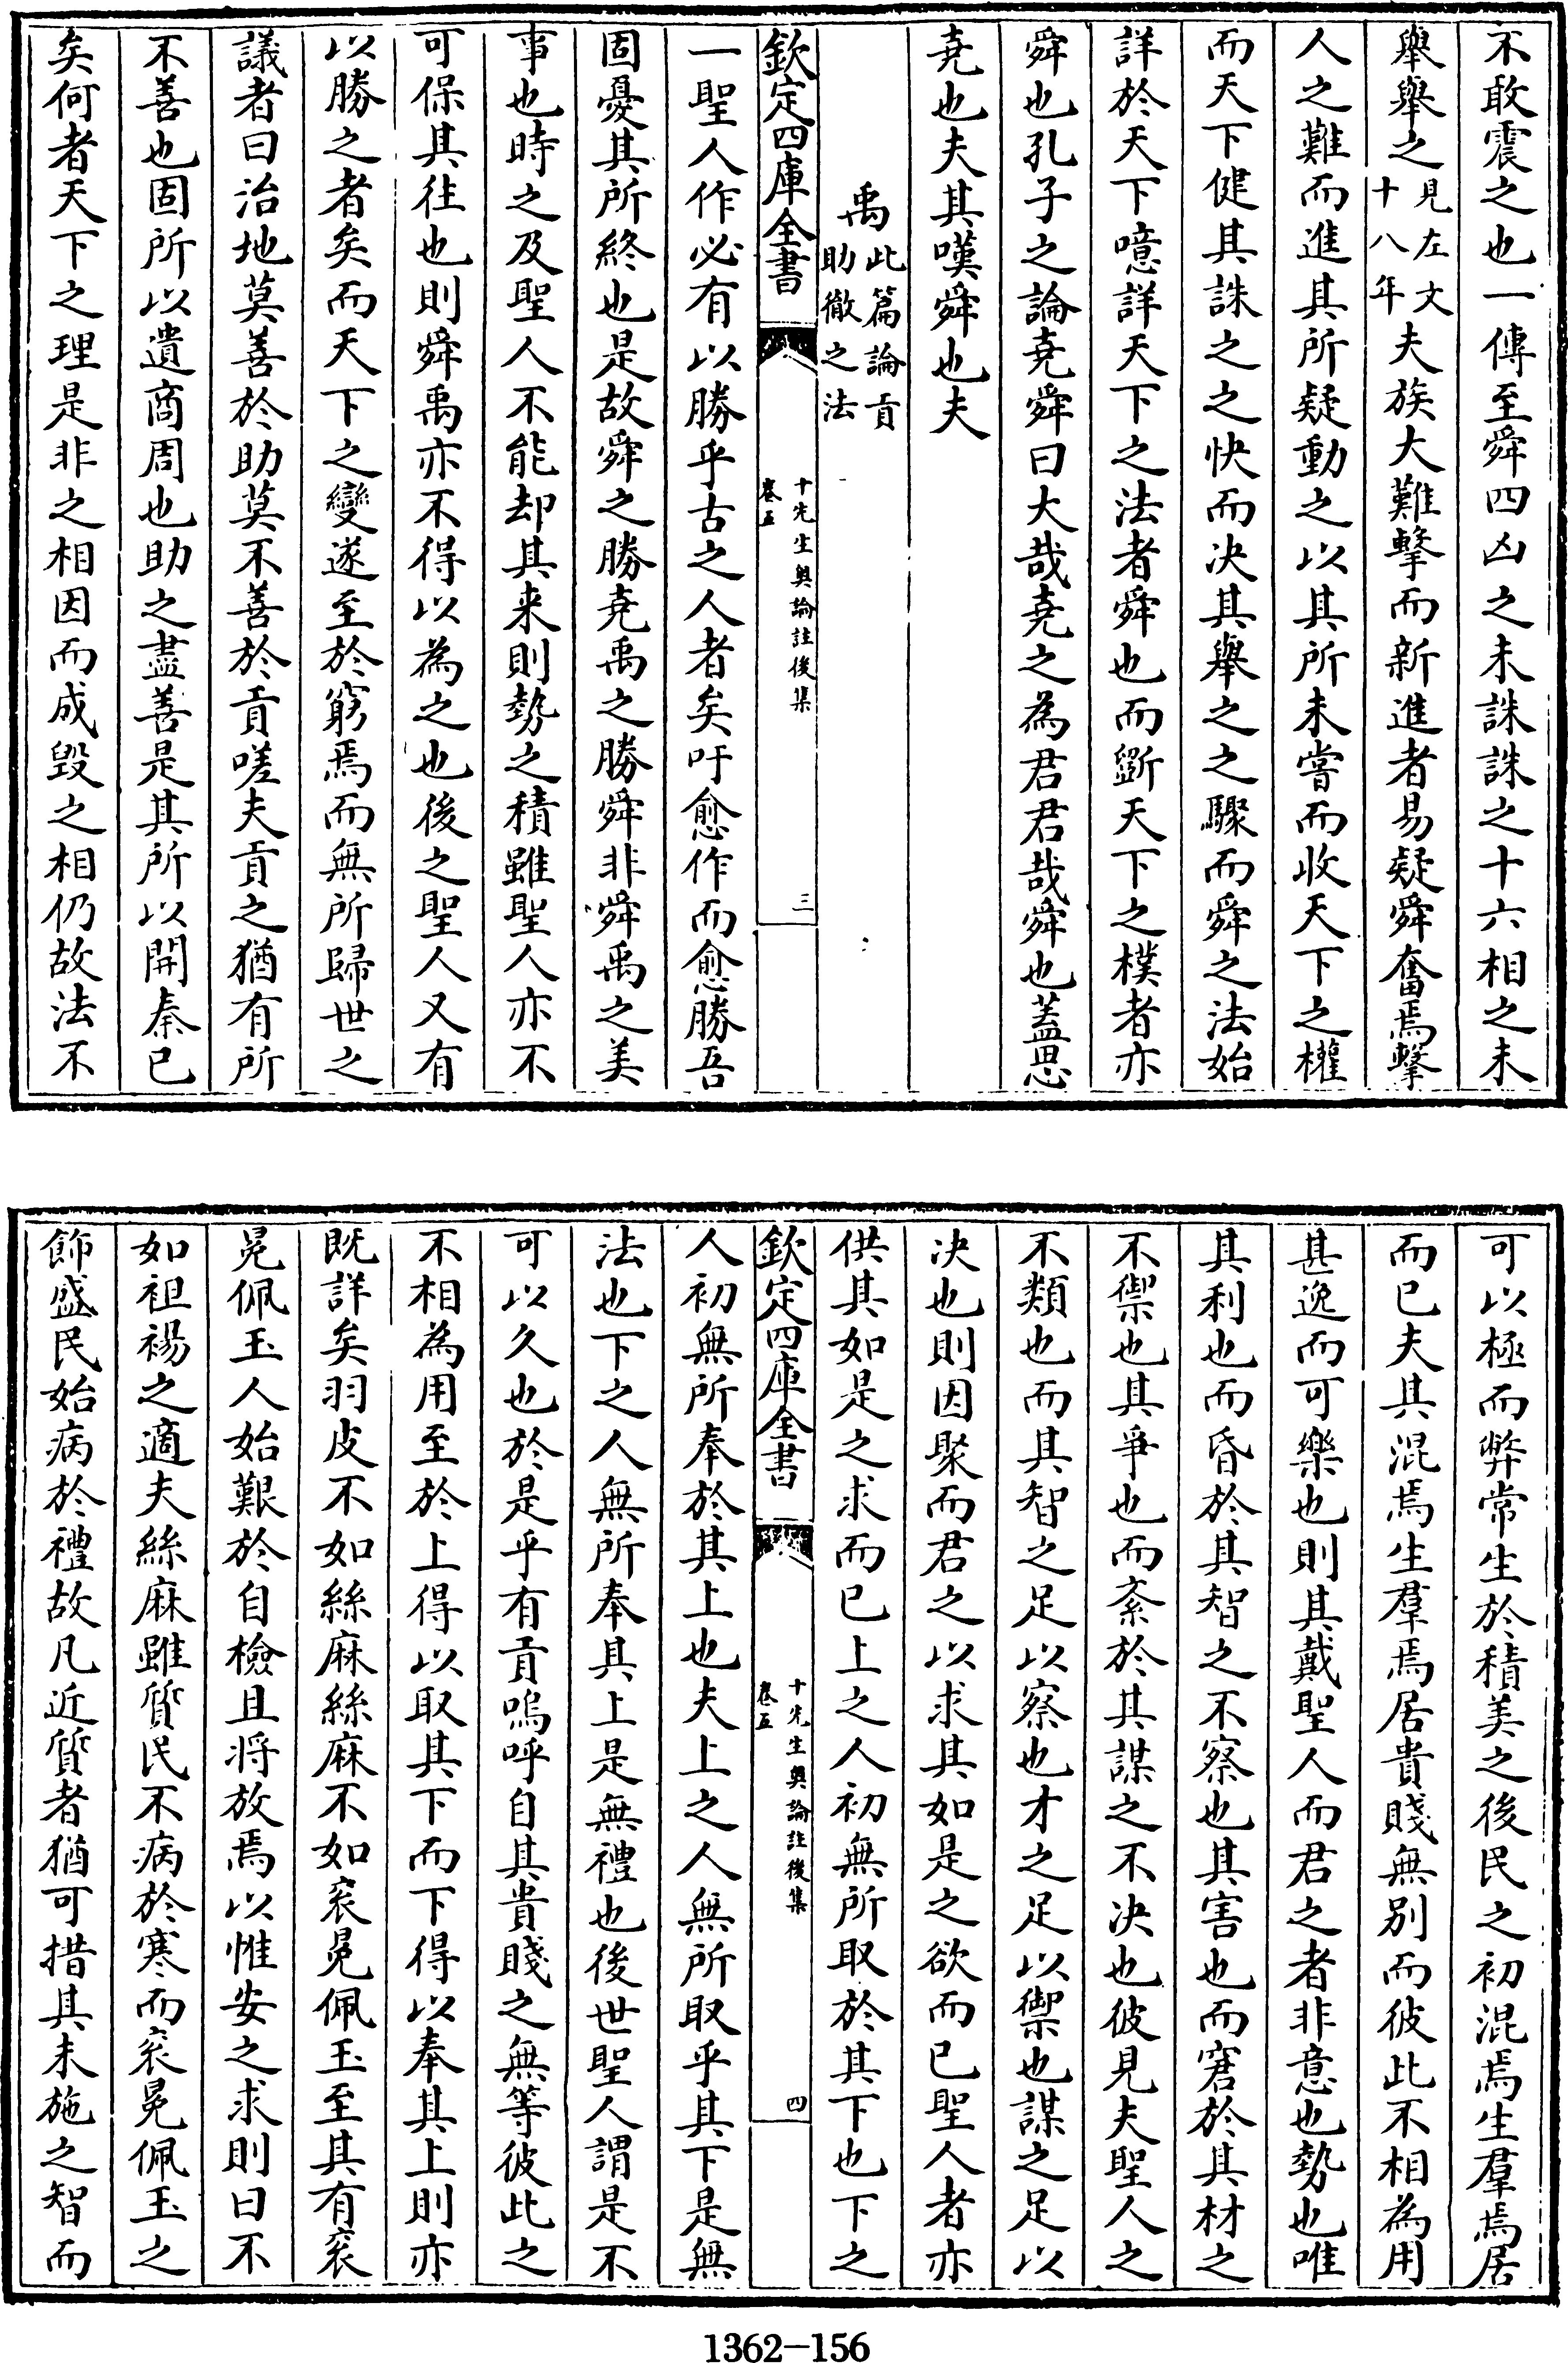 不敢震之也一傳至舜四凶之未誅誅之十六相之未
舉舉之見左文十八年夫族大難擊而新進者易疑舜奮焉擊
人之難而進其所疑動之以其所未嘗而收天下之權
而天下健其誅之之快而决其舉之之驟而舜之法始
詳於天下噫詳天下之法者舜也而斵天下之樸者亦
舜也孔子之論堯舜曰大哉堯之為君君哉舜也蓋思
堯也夫其嘆舜也夫
禹此篇論貢助徹之法
欽定四庫全書
十先生奧論註後集
卷五
三
一聖人作必有以勝乎古之人者矣吁愈作而愈勝吾
固憂其所終也是故舜之勝堯禹之勝舜非舜禹之美
事也時之及聖人不能却其来則勢之積雖聖人亦不
可保其往也則舜禹亦不得以為之也後之聖人又有
以勝之者矣而天下之變遂至於窮焉而無所歸世之
議者曰治地莫善於助莫不善於貢嗟夫貢之猶有所
不善也固所以遺商周也助之盡善是其所以開秦已
矣何者天下之理是非之相因而成毀之相仍故法不
可以極而弊常生於積美之後民之初混焉生羣焉居
而已夫其混焉生羣焉居貴賤無别而彼此不相為用
甚逸而可樂也則其戴聖人而君之者非意也勢也唯
其利也而昏於其智之不察也其害也而窘於其材之
不禦也其爭也而紊於其謀之不决也彼見夫聖人之
不類也而其智之足以察也才之足以禦也謀之足以
决也則因聚而君之以求其如是之欲而已聖人者亦
供其如是之求而已上之人初無所取於其下也下之
欽定四庫全書
十先生奧論註後集
卷五
四
人初無所奉於其上也夫上之人無所取乎其下是無
法也下之人無所奉其上是無禮也後世聖人謂是不
可以久也於是乎有貢嗚呼自其貴賤之無等彼此之
不相為用至於上得以取其下而下得以奉其上則亦
既詳矣羽皮不如絲麻絲麻不如衮冕佩玉至其有衮
冕佩玉人始艱於自檢且将放焉以惟安之求則曰不
如袒裼之適夫絲麻雖質民不病於寒而衮冕佩玉之
飾盛民始病於禮故凡近質者猶可措其未施之智而
1362-156